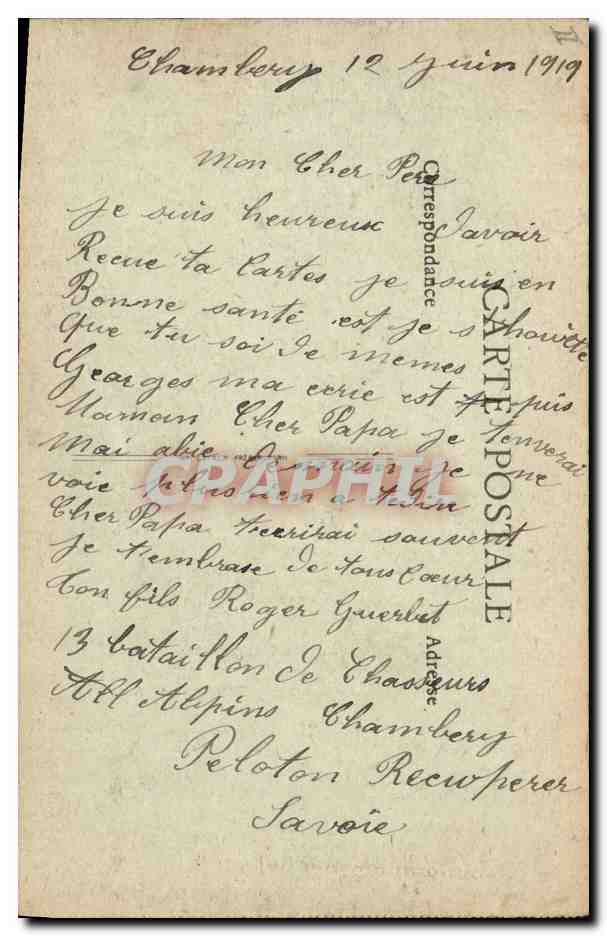 Chambery 12 Juin 1919
Mon Cher Pere
Je suis heureux Davoir
Recue ta Cartes je suis en
Bonne santé est je s'houète
Que tu soi de memes
Georges ma ecrie est puis
Maman Cher Papa je t'enverai
Mai abie Demain je ne
voie plus rien a te dire
Cher Papa tecrirai souvent
je t'embrase de tous Cœur
Ton fils Roger Guerbet
13 bataillon de Chasseurs
All Alpins Chambery
Peloton Recuperer
Savoie
Correspondance
CARTE POSTALE
Adresse
CPAPHIL